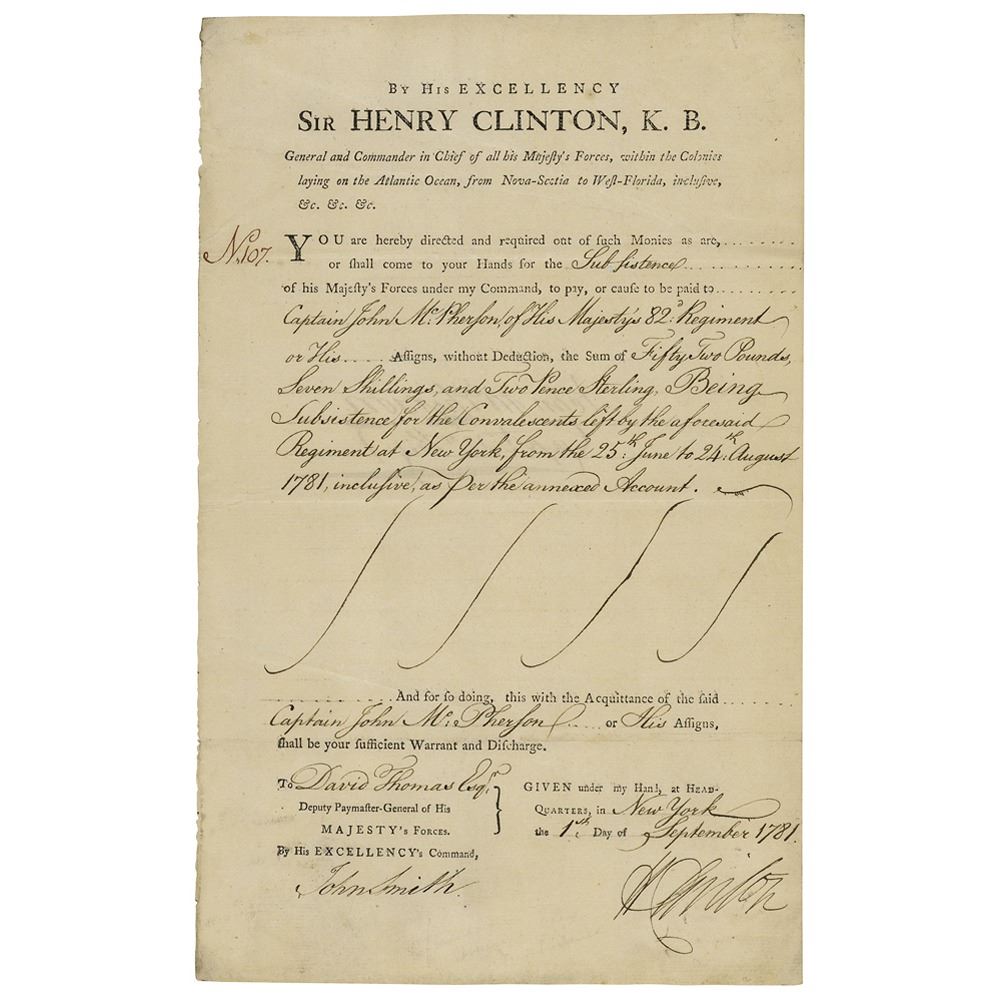 By His EXCELLENCY
Sir HENRY CLINTON, K. B.
General and Commander in Chief of all his Majeſty's Forces, within the Colonies
laying on the Atlantic Ocean, from Nova-Scotia to Weſt-Florida, incluſive,
&c. &c. &c.
N.107.
YOU are hereby directed and required out of ſuch Monies as are,
or ſhall come to your Hands for the Subsistence
of his Majeſty's Forces under my Command, to pay, or cause to be paid to
Captain John Mc:Pherſon, of His Majesty's 82d Regiment
or His Aſſigns, without Deduction, the Sum of Fifty Two Pounds,
Seven Shillings, and Two Pence Sterling, Being
Subsistence for the Convalescents left by the aforesaid
Regiment at New York, from the 25th: June to 24th: August
1781, incluſive, as Per the annexed Account.
And for ſo doing, this with the Acquittance of the ſaid
Captain John Mc: Pherſon or His Aſſigns,
ſhall be your ſufficient Warrant and Diſcharge.
To David Thomas Esqr.
Deputy Paymaſter-General of His
MAJESTY's Forces.
By His EXCELLENCY's Command,
John Smith.
GIVEN under my Hand, at HEAD-
QUARTERS, in New York
the 1st: Day of September 1781.
H Clinton